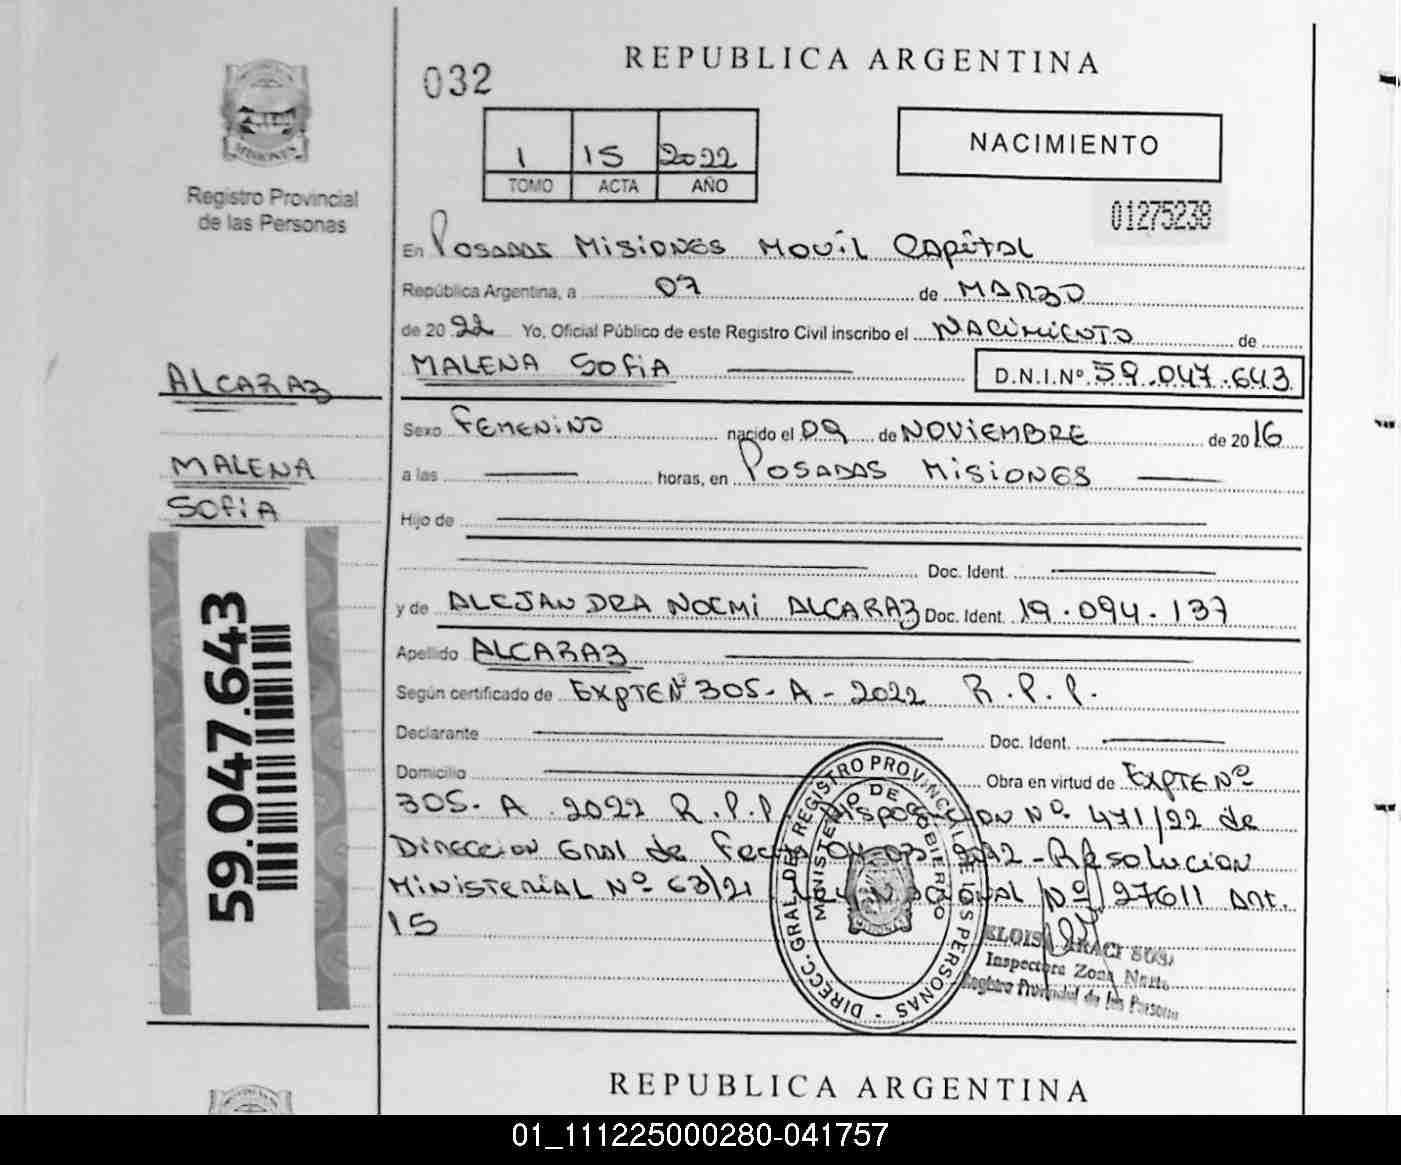 032
REPUBLICA ARGENTINA
MISIONES
Registro Provincial
de las Personas
1 15 2022
TOMO ACTA AÑO
NACIMIENTO
01275238
En Posadas Misiones Movil Capital
República Argentina, a 07 de MARZO
de 2022 Yo, Oficial Público de este Registro Civil inscribo el NACIMIENTO de
MALENA SOFIA D.N.I.Nº 59.047.643
ALCARAZ
MALENA
SOFIA
59.047.643
Sexo FEMENINO nacido el 09 de NOVIEMBRE de 2016
a las horas, en POSADAS MISIONES
Hijo de
Doc. Ident.
y de ALEJANDRA NOEMI ALCARAZ Doc. Ident. 19.094.137
Apellido ALCARAZ
Según certificado de EXPTE Nº 305-A-2022 R.P.P.
Declarante Doc. Ident.
Domicilio Obra en virtud de EXPTE Nº
305-A-2022 R.P.P. Disposicion Nº 471/22 de
Direccion Gral de Fecha 2022-Resolucion
Ministerial Nº 63/21 Nº 27611 Art.
15
DIRECC. GRAL. DEL REGISTRO PROVINCIAL DE LAS PERSONAS
MINISTERIO DE GOBIERNO
Inspectora Zona Norte
Registro Provincial de las Personas
REPUBLICA ARGENTINA
01_111225000280-041757